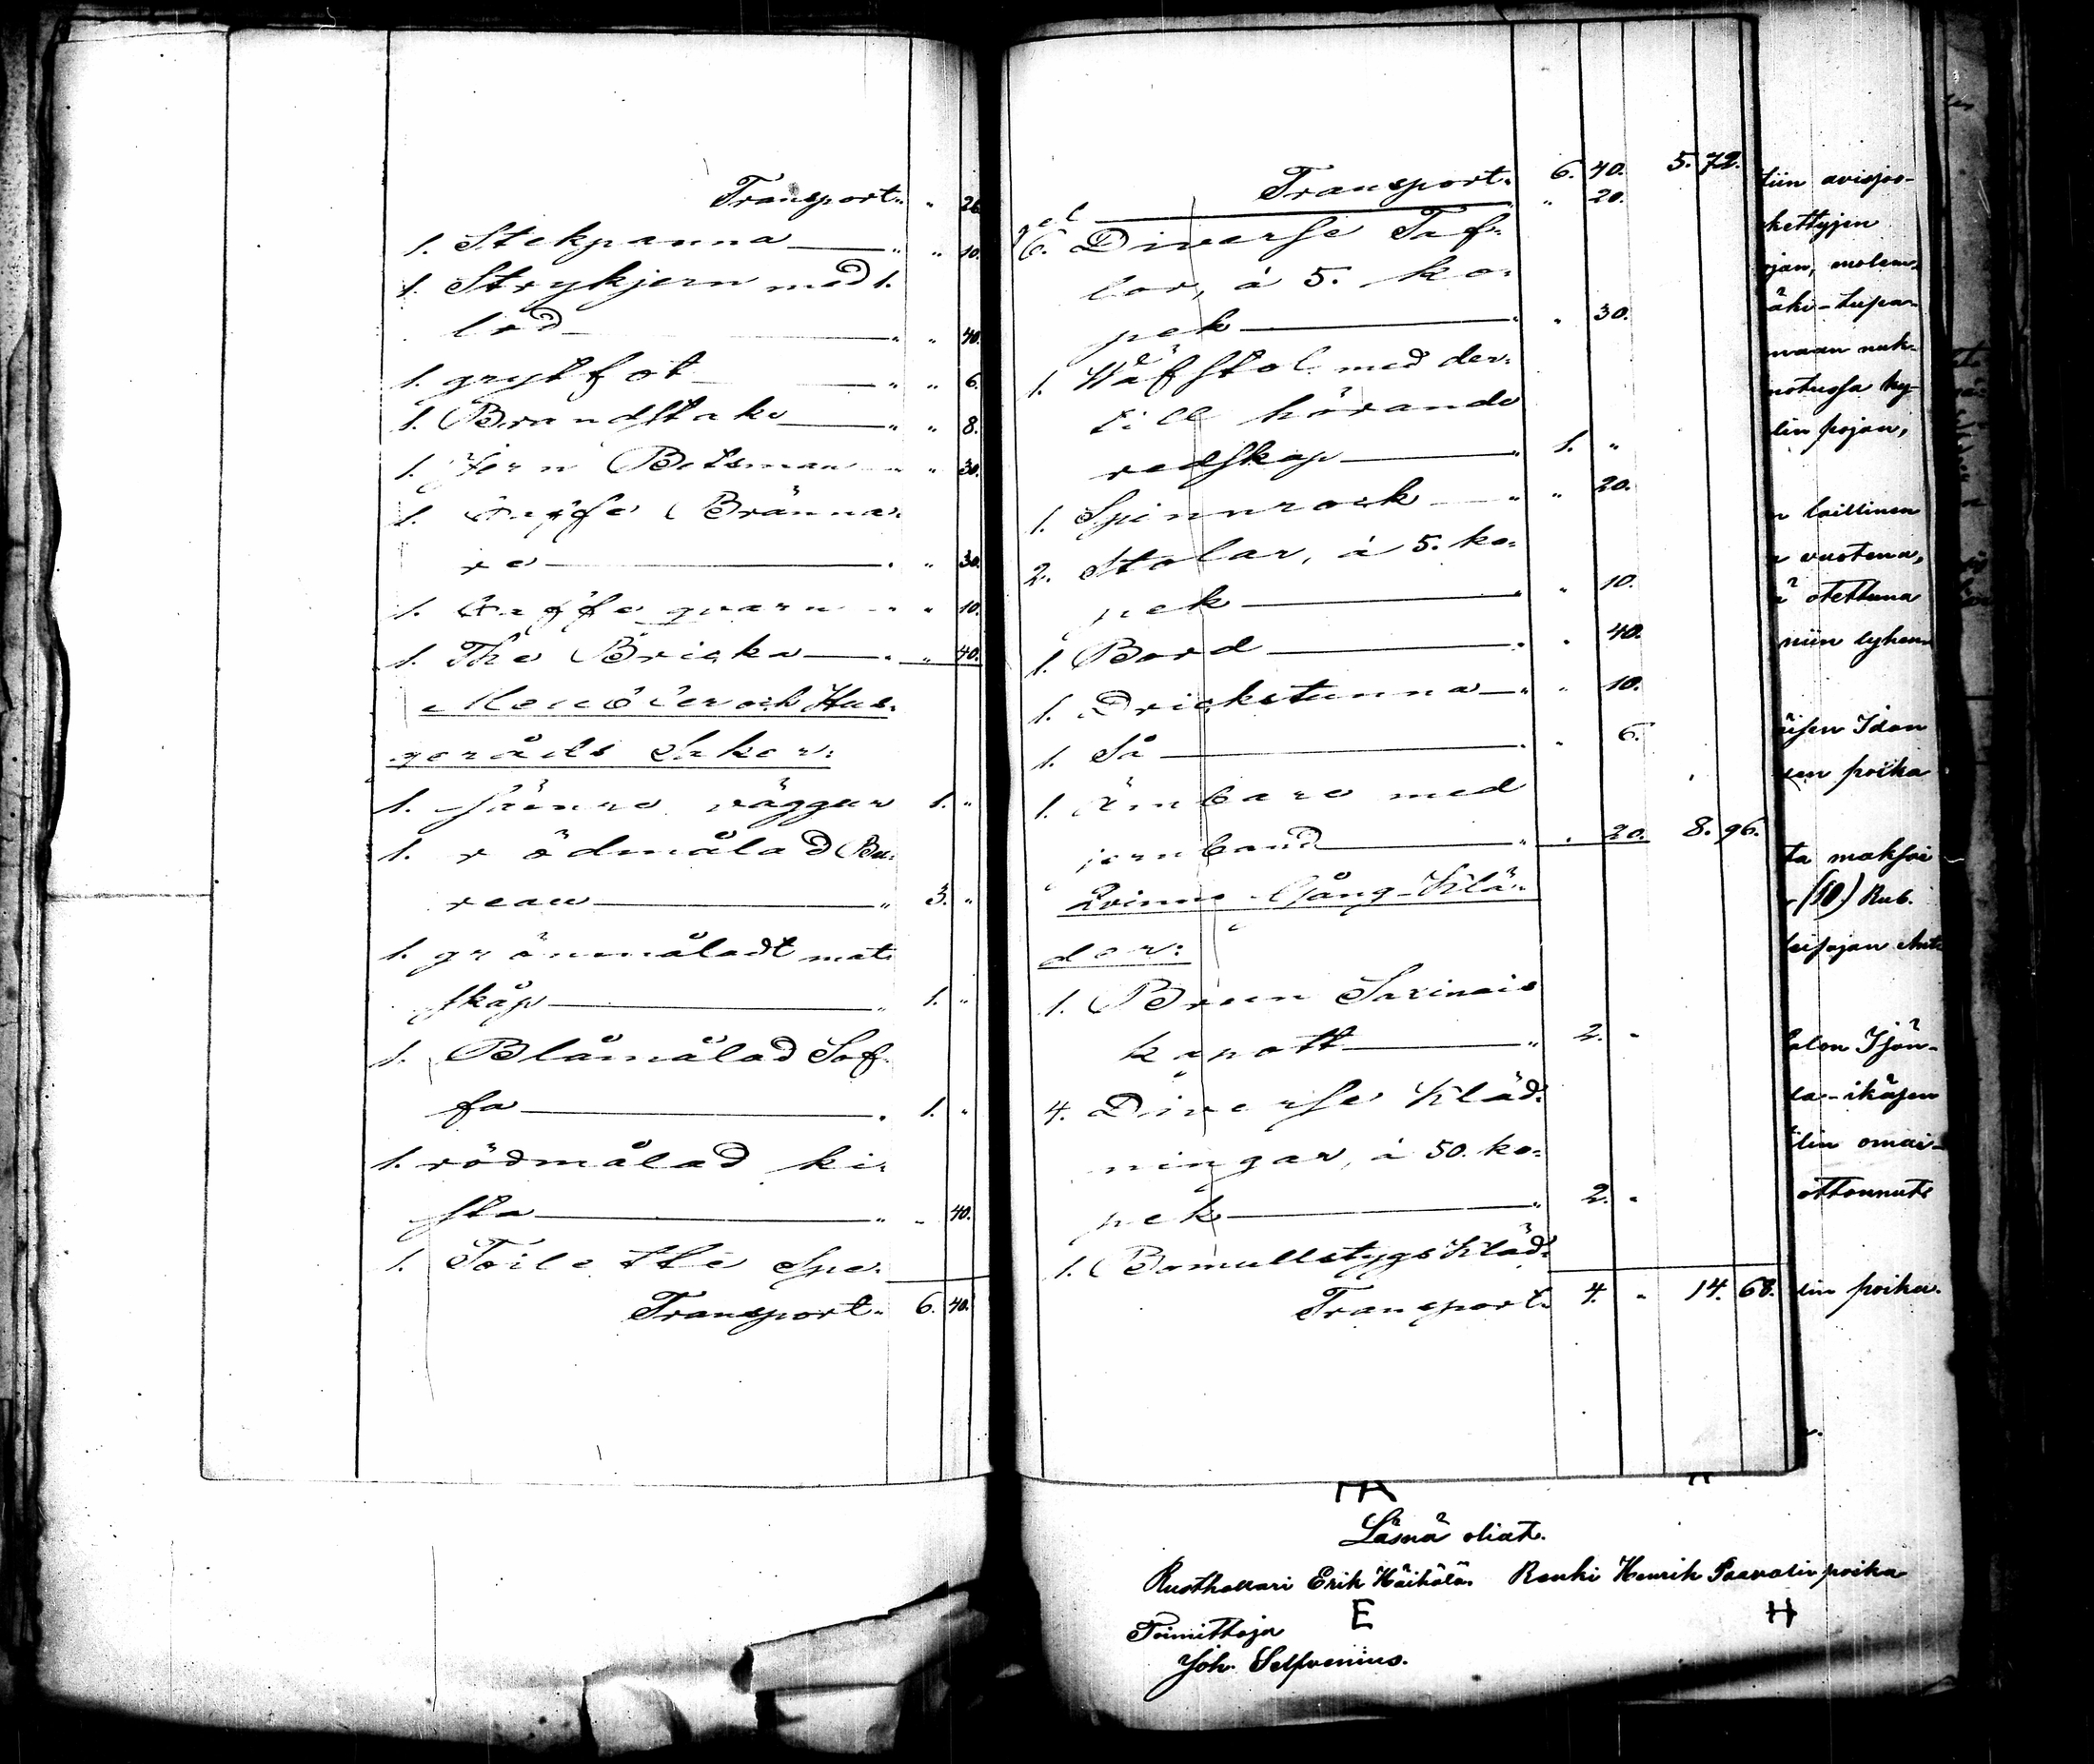 Transport„ „ 26
1. Stekpanna „ „ 10.
1. Strykjern med 1.
lod „ „ 40.
1. grytfot „ „ 6.
1. Brandstake „ „ 8.
1. Jern Betsman „ „ 30.
1. Kaffe Bränna„
re „ „ 30.
1. Kaffe qvarn „ „ 10.
1. The Bricka „ „ 40.
Meubler och Hus„
geråds Saker:
1. rödmålad Bu„
reau „ 3. „
1. grönmåladt mat„
skåp „ 1. „
1. Blåmålad Sof„
fa „ 1. „
1. rödmålad ki„
sta „ „ 40.
1. Toilette Spe„
Transport„ 6. 40.
Transport„ 6. 40. 5. 72.
„ 20.
6. Diverse Taf„
lor, á 5. ko„
pek „ „ 30.
1. Wäfstol med der„
till hörande
redskap „ 1. „
1. Spinnrock „ „ 20.
2. Stolar, á 5. ko„
pek „ „ 10.
1. Bord „ „ 40.
1. Drickstunna „ „ 10.
1. Så „ „ 6.
1. Ämbare med
jernband „ „ 20. 8. 96.
Qvinno Gång-Klä„
der:
1. Brun Saxinais
kapott „ 2. „
4. Diverse Kläd„
ningar, á 50. ko„
pek „ 2. „
1. Bomullstygs Kläd„
Transport„ 4. „ 14. 68.
kettyjen
lin pojan,
n laillinen
otettuna
niin lyhen
poika
ta maksoi
(10) Rub.
omai-
ottanut
lin poika.
Läsnä oliat.
Rusthollari Erik Häihälä. Renki Henrik Paavalin poika
E H
Toimittaja
Joh. Selfvenius.